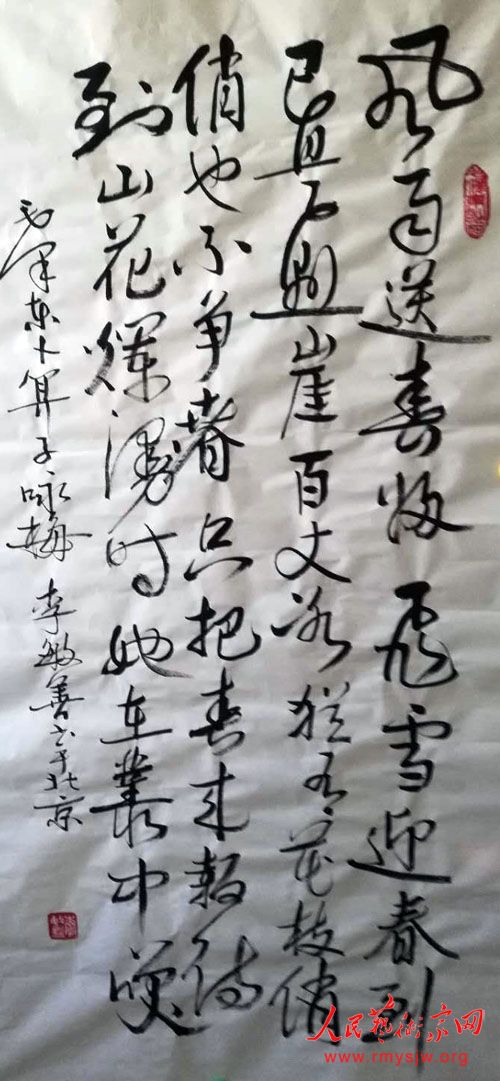 风雨送春归飞雪迎春到
已是悬崖百丈冰犹有花枝俏
俏也不争春只把春来报待
到山花爛漫时她在叢中笑
毛泽东卜算子咏梅 李敏善书于北京
人民藝術家网
www.rmysjw.org